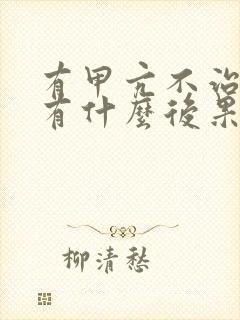 有甲亢不治
有什麼後果
柳清愁